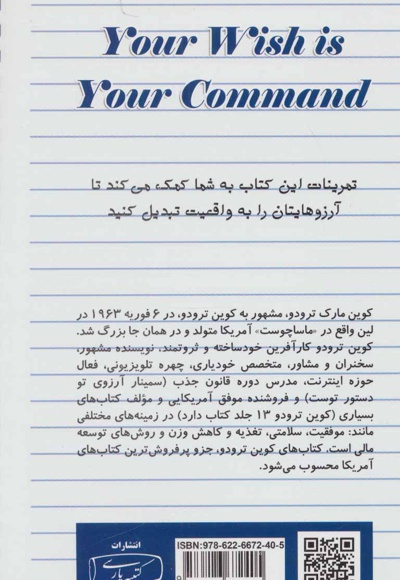 Your Wish is
Your Command
تمرینات این کتاب به شما کمک می‌کند تا
آرزوهایتان را به واقعیت تبدیل کنید
کوین مارک ترودو، مشهور به کوین ترودو، در ۶ فوریه ۱۹۶۳ در
لین واقع در «ماساچوست» آمریکا متولد و در همان جا بزرگ شد.
کوین ترودو کارآفرین خودساخته و ثروتمند، نویسنده مشهور،
سخنران و مشاور، متخصص خودیاری، چهره تلویزیونی، فعال
حوزه اینترنت، مدرس دوره قانون جذب (سمینار آرزوی تو
دستور توست) و فروشنده موفق آمریکایی و مؤلف کتاب‌های
بسیاری (کوین ترودو ۱۳ جلد کتاب دارد) در زمینه‌های مختلفی
مانند: موفقیت، سلامتی، تغذیه و کاهش وزن و روش‌های توسعه
مالی است. کتاب‌های کوین ترودو، جزو پرفروش‌ترین کتاب‌های
آمریکا محسوب می‌شود.
انتشارات
ISBN: 978-622-6672-40-5